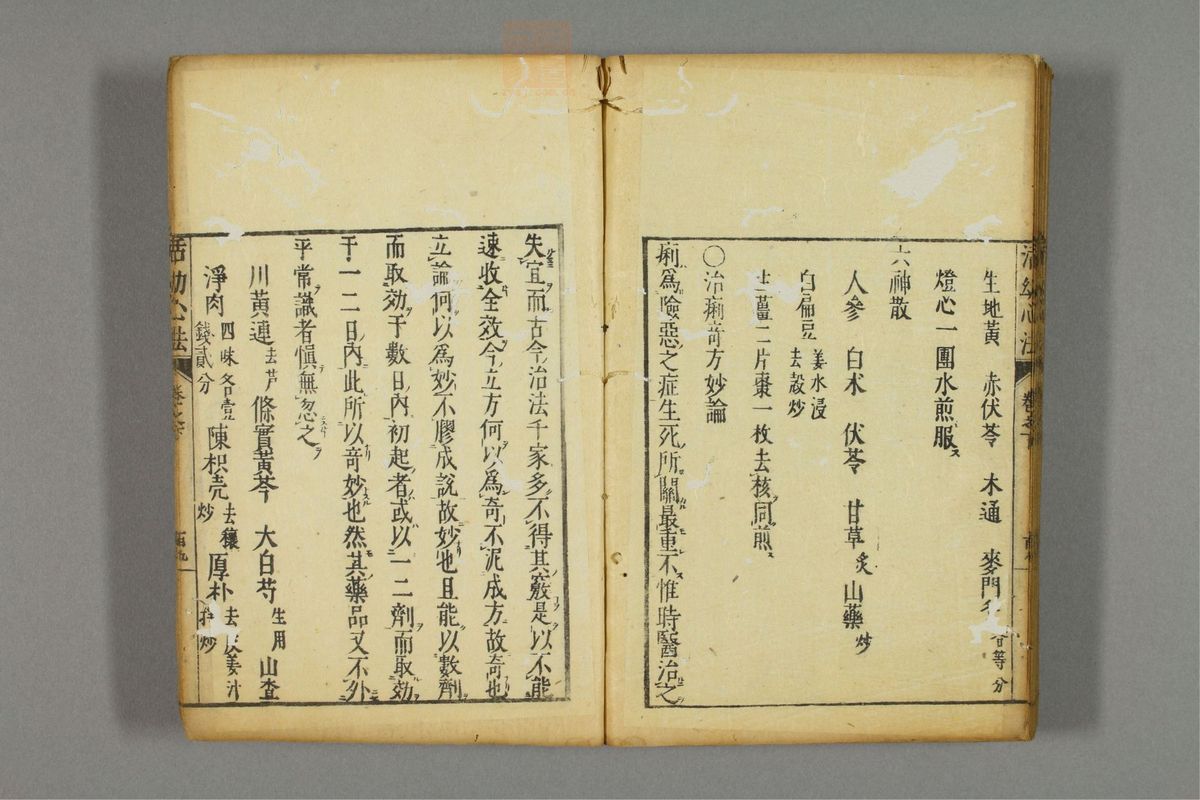 生地黄 赤伏苓 木通 麥門冬 各等分
燈心一團水煎服ス
六神散
人參 白术 伏苓 甘草炙 山藥炒
白扁豆 姜水浸去殻炒
生薑二片棗一枚去核同煎ス
〇治痢竒方妙論
痢爲險惡之症生死所關最重不惟時醫治之
失宜而古今治法千家多不得其竅是以不能
速收全效今立方何以爲竒不泥成方故竒也
立論何以爲妙不膠成說故妙也且能以數劑
而取効于數日內初起者或以一二劑而取効
于一二日內此所以竒妙也然其藥品又不外
平常識者愼無忽之
川黄連去芦 條實黄芩 大白芍生用 山查
淨肉四味各壹錢貳分 陳枳壳去穰炒 厚朴去皮姜汁拌炒
活幼心法 卷之